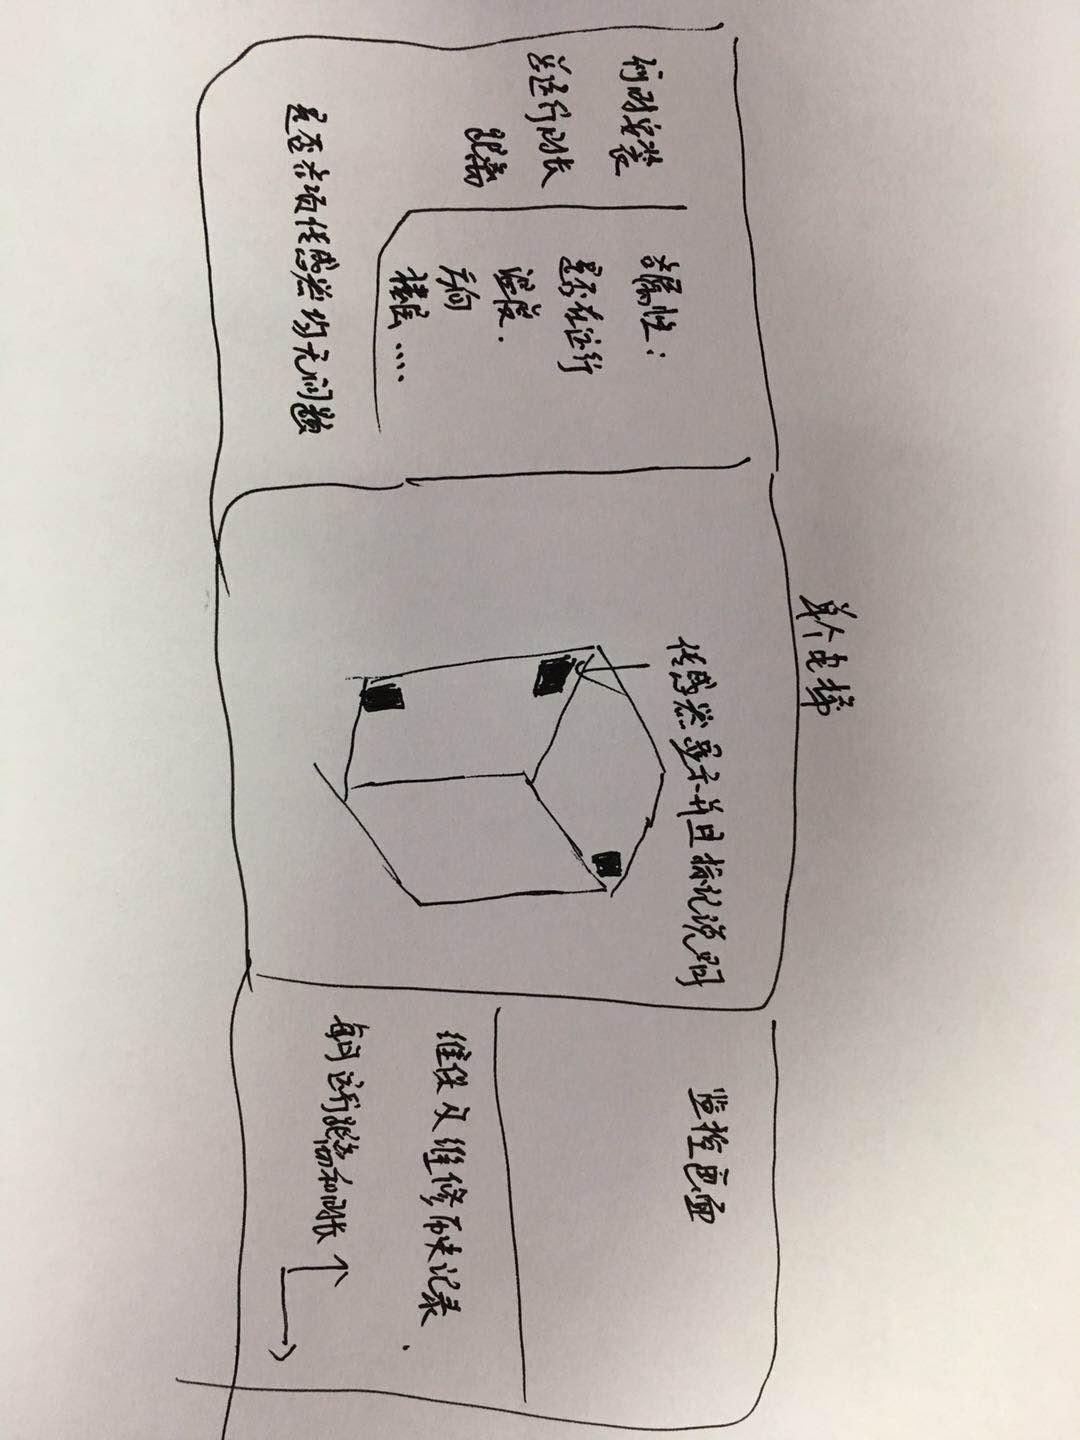 单个电梯
何时安装
总运行时长
距离
各属性：
是否在运行
温度.
方向
楼层....
是否各项传感器均无问题
传感器显示并且标记说明
监控画面
维保及维修历史记录.
每日运行距离和时长